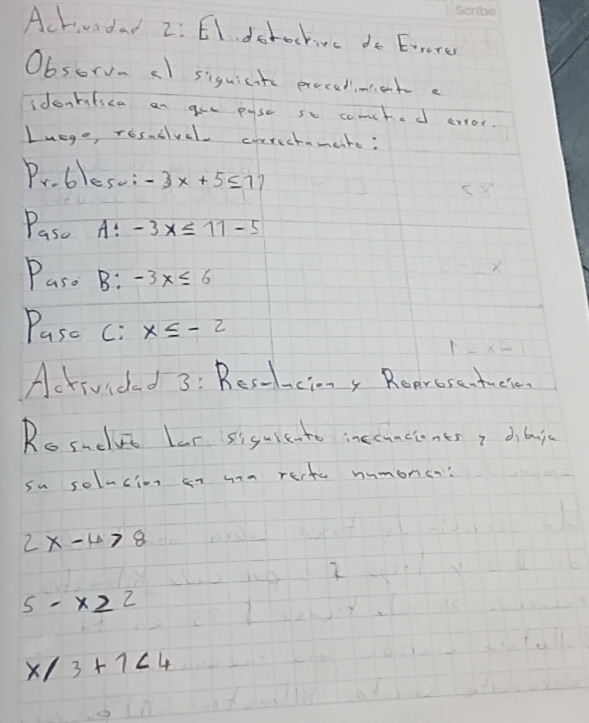 Scribe
Actividad 2: El detective de Errores
Observa el siguiente procedimiento e
identifica en que paso se cometió el error.
Luego, resuélvelo correctamente:
Problema: -3x + 5 ≤ 11
Paso A: -3x ≤ 11 - 5
Paso B: -3x ≤ 6
Paso C: x ≤ -2
Actividad 3: Resolucion y Representacion
Resuelve las siguiente inecuaciones y dibuja
su solucion en una recta numerica:
2x - 4 > 8
5 - x ≥ 2
x/3 + 1 < 4